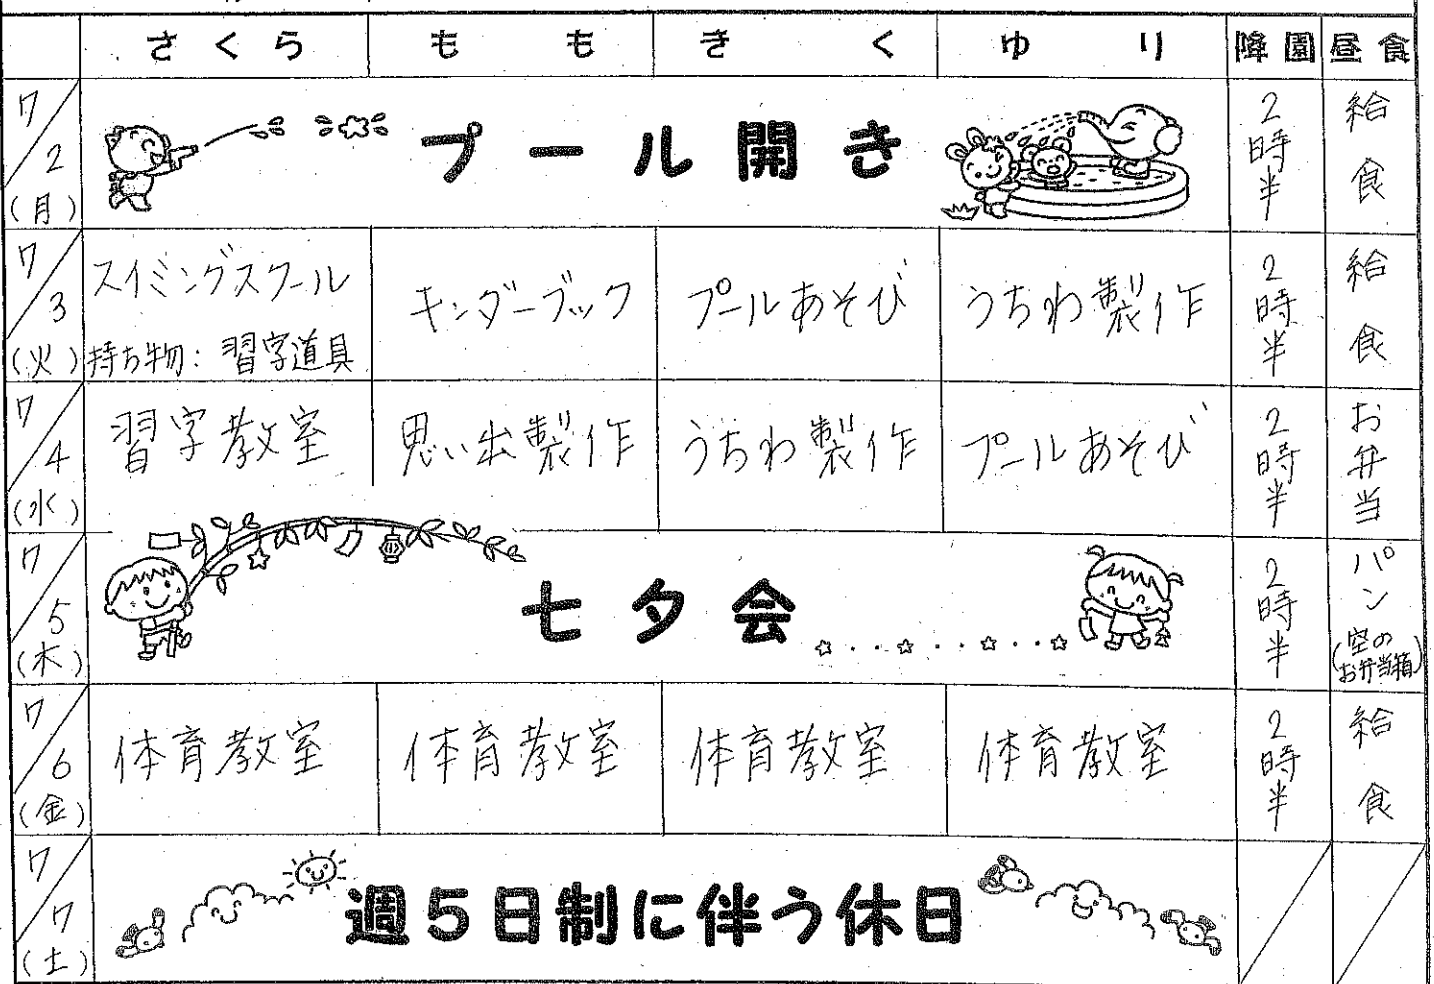 さくら もも きく ゆり 降園 昼食
7/2(月) プール開き 2時半 給食
7/3(火) スイミングスクール 持ち物:習字道具 キンダーブック プールあそび うちわ製作 2時半 給食
7/4(水) 習字教室 思い出製作 うちわ製作 プールあそび 2時半 お弁当
7/5(木) 七夕会 2時半 パン(空のお弁当箱)
7/6(金) 体育教室 体育教室 体育教室 体育教室 2時半 給食
7/7(土) 週5日制に伴う休日